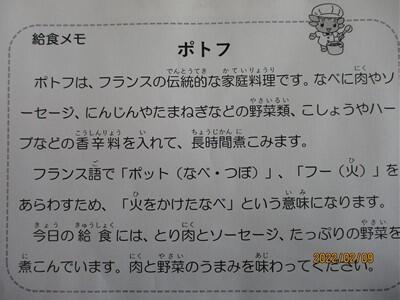 給食メモ
ポトフ
ポトフは、フランスの伝統的な家庭料理です。なべに肉やソ
ーセージ、にんじんやたまねぎなどの野菜類、こしょうやハー
ブなどの香辛料を入れて、長時間煮こみます。
フランス語で「ポット（なべ・つぼ）」、「フー（火）」を
あらわすため、「火をかけたなべ」という意味になります。
今日の給食には、とり肉とソーセージ、たっぷりの野菜を
煮こんでいます。肉と野菜のうまみを味わってください。
2022/02/09